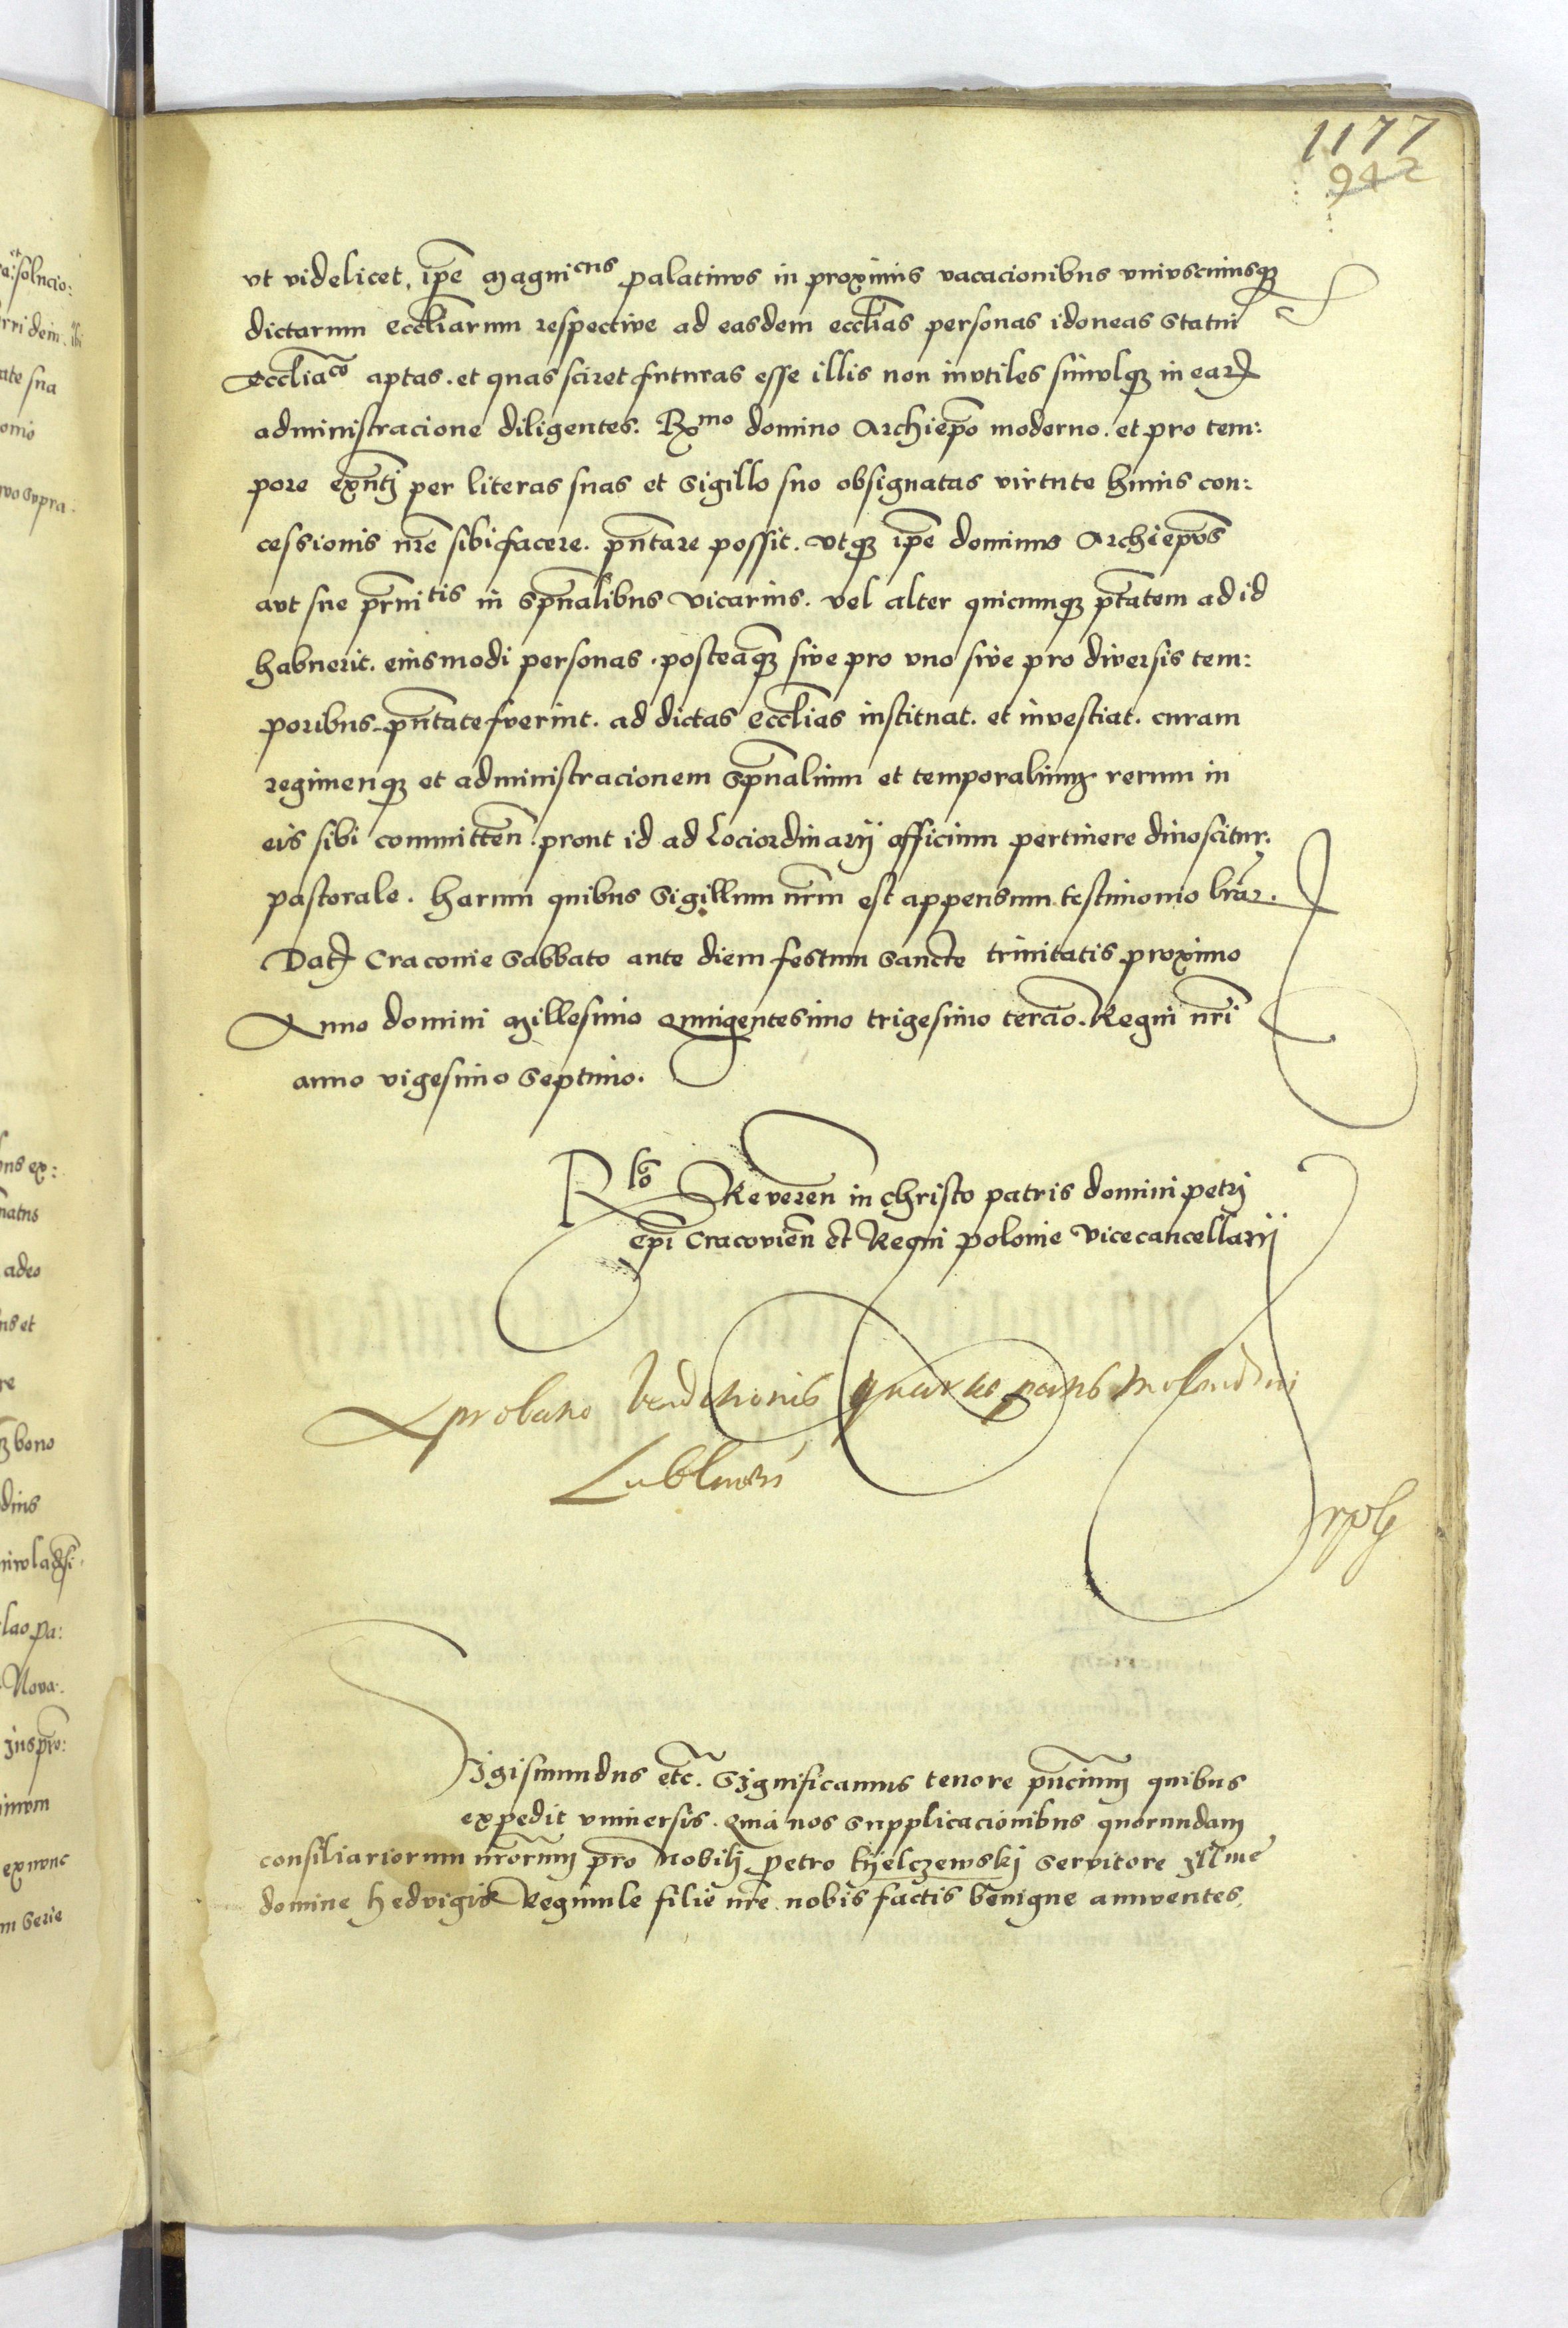 1177
942
vt videlicet, ip̄e Magni^cus palatinus in proximis vacacionibus vniuscuiusq3
dictarum eccl̄iarum respectiue ad easdem eccl̄ias personas idoneas statui
eccl̄ia^co aptas. et quas sciret futuras esse illis non inutiles simulq3 in ear̄
administracione diligentes. R^mo domino Archiep̄o moderno. et pro tem:
pore exn̄tj per literas suas et sigillo suo obsignatas virtute huius con:
cessionis nr̄e sibi facere. pn̄tare possit. vtq3 ip̄e dominus Archiep̄us
aut sue pr̄ni^tis in sp̄nalibus vicarius. vel alter quicunq3 pt̄atem ad id
habuerit. eiusmodi personas. posteaq̄3 siue pro vno siue pro diuersis tem:
poribus pn̄tate fuerint. ad dictas eccl̄ias instituat. et inuestiat. curam
regimenq3 et administracionem sp̄nalium et temporalium rerum in
eis sibi committen̄. prout id ad Lociordinarij officium pertinere dinoscitur.
pastorale. Harum quibus sigillum nr̄m est appensum testimonio lr̄ar.
Dat̄ Cracouie sabbato ante diem festum sancte trinitatis proximo
Anno domini Millesimo Quingentesimo trigesimo tercio. Regni nr̄i
anno vigesimo septimo.
R^lo Reueren̄ in christo patris domini petrj
ep̄i Cracouien̄ et Regni polonie vicecancellarij
Aprobatio venditionis quartae partis molendini
Lublinen
Sigismundus etc̄. Significamus tenore pn̄cium quibus
expedit vniuersis. Quia nos supplicacionibus quorundam
consiliariorum nr̄orum pro Nobilj petro kyelczewskj seruitore Ill^me
domine hedvigis Regimule filie nr̄e nobis factis benigne annuentes.